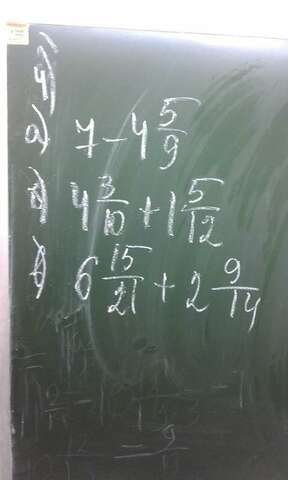 4)
а) 7 - 4 5/9
б) 4 3/10 + 1 5/12
в) 6 15/21 + 2 9/14